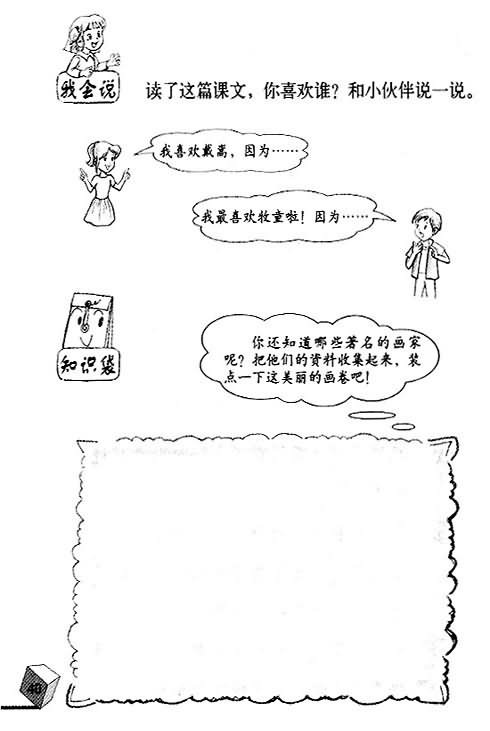 我会说
读了这篇课文，你喜欢谁？和小伙伴说一说。
我喜欢戴嵩，因为……
我最喜欢牧童啦！因为……
知识袋
你还知道哪些著名的画家
呢？把他们的资料收集起来，装
点一下这美丽的画卷吧！
40